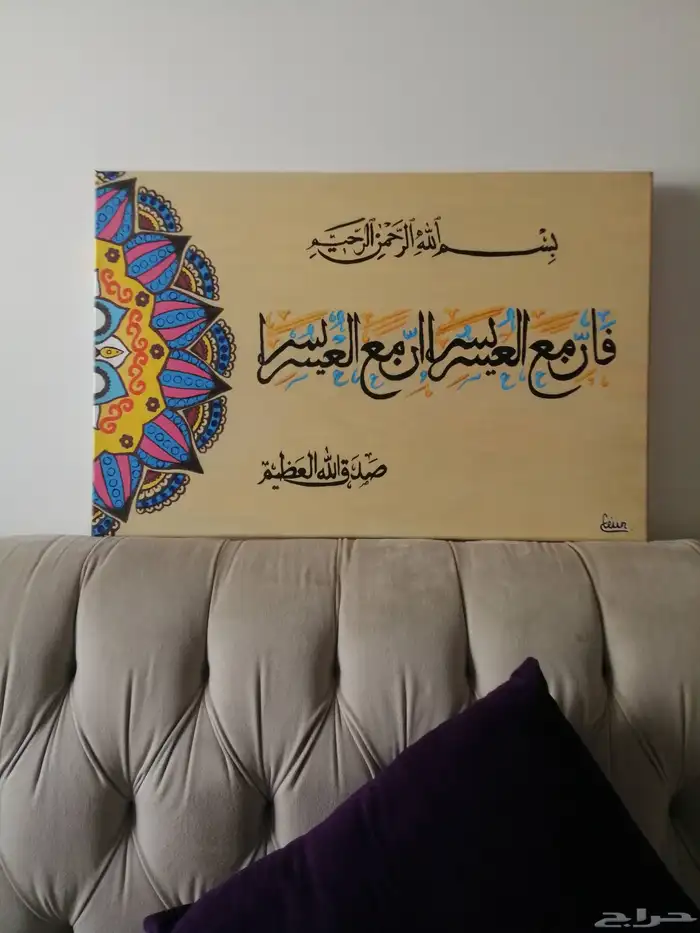 بِسْمِ ٱللَّهِ ٱلرَّحْمَنِ ٱلرَّحِيمِ
فَإِنَّ مَعَ العُسْرِ يُسْرًا إِنَّ مَعَ العُسْرِ يُسْرًا
صَدَقَ الله العَظِيم
حراج